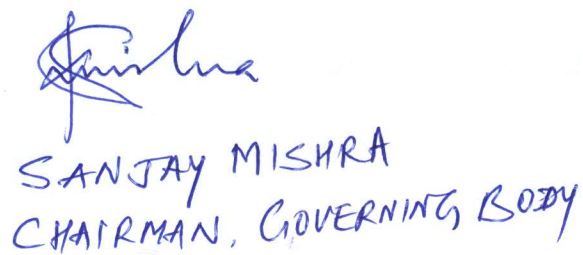 SANJAY MISHRA
CHAIRMAN, GOVERNING BODY